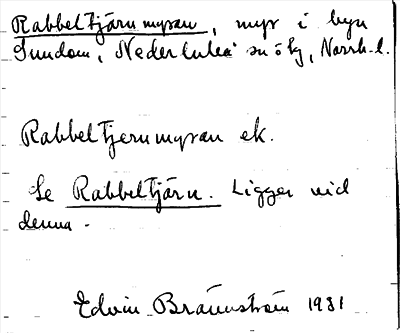 Rabbeltjärnmyran, myr i byn
Sundom, Nederluleå sn ö lg, Norrb. l.
Rabbeltjernmyran ek.
Se Rabbeltjärn. Ligger vid
denna.
Edvin Brännström 1931